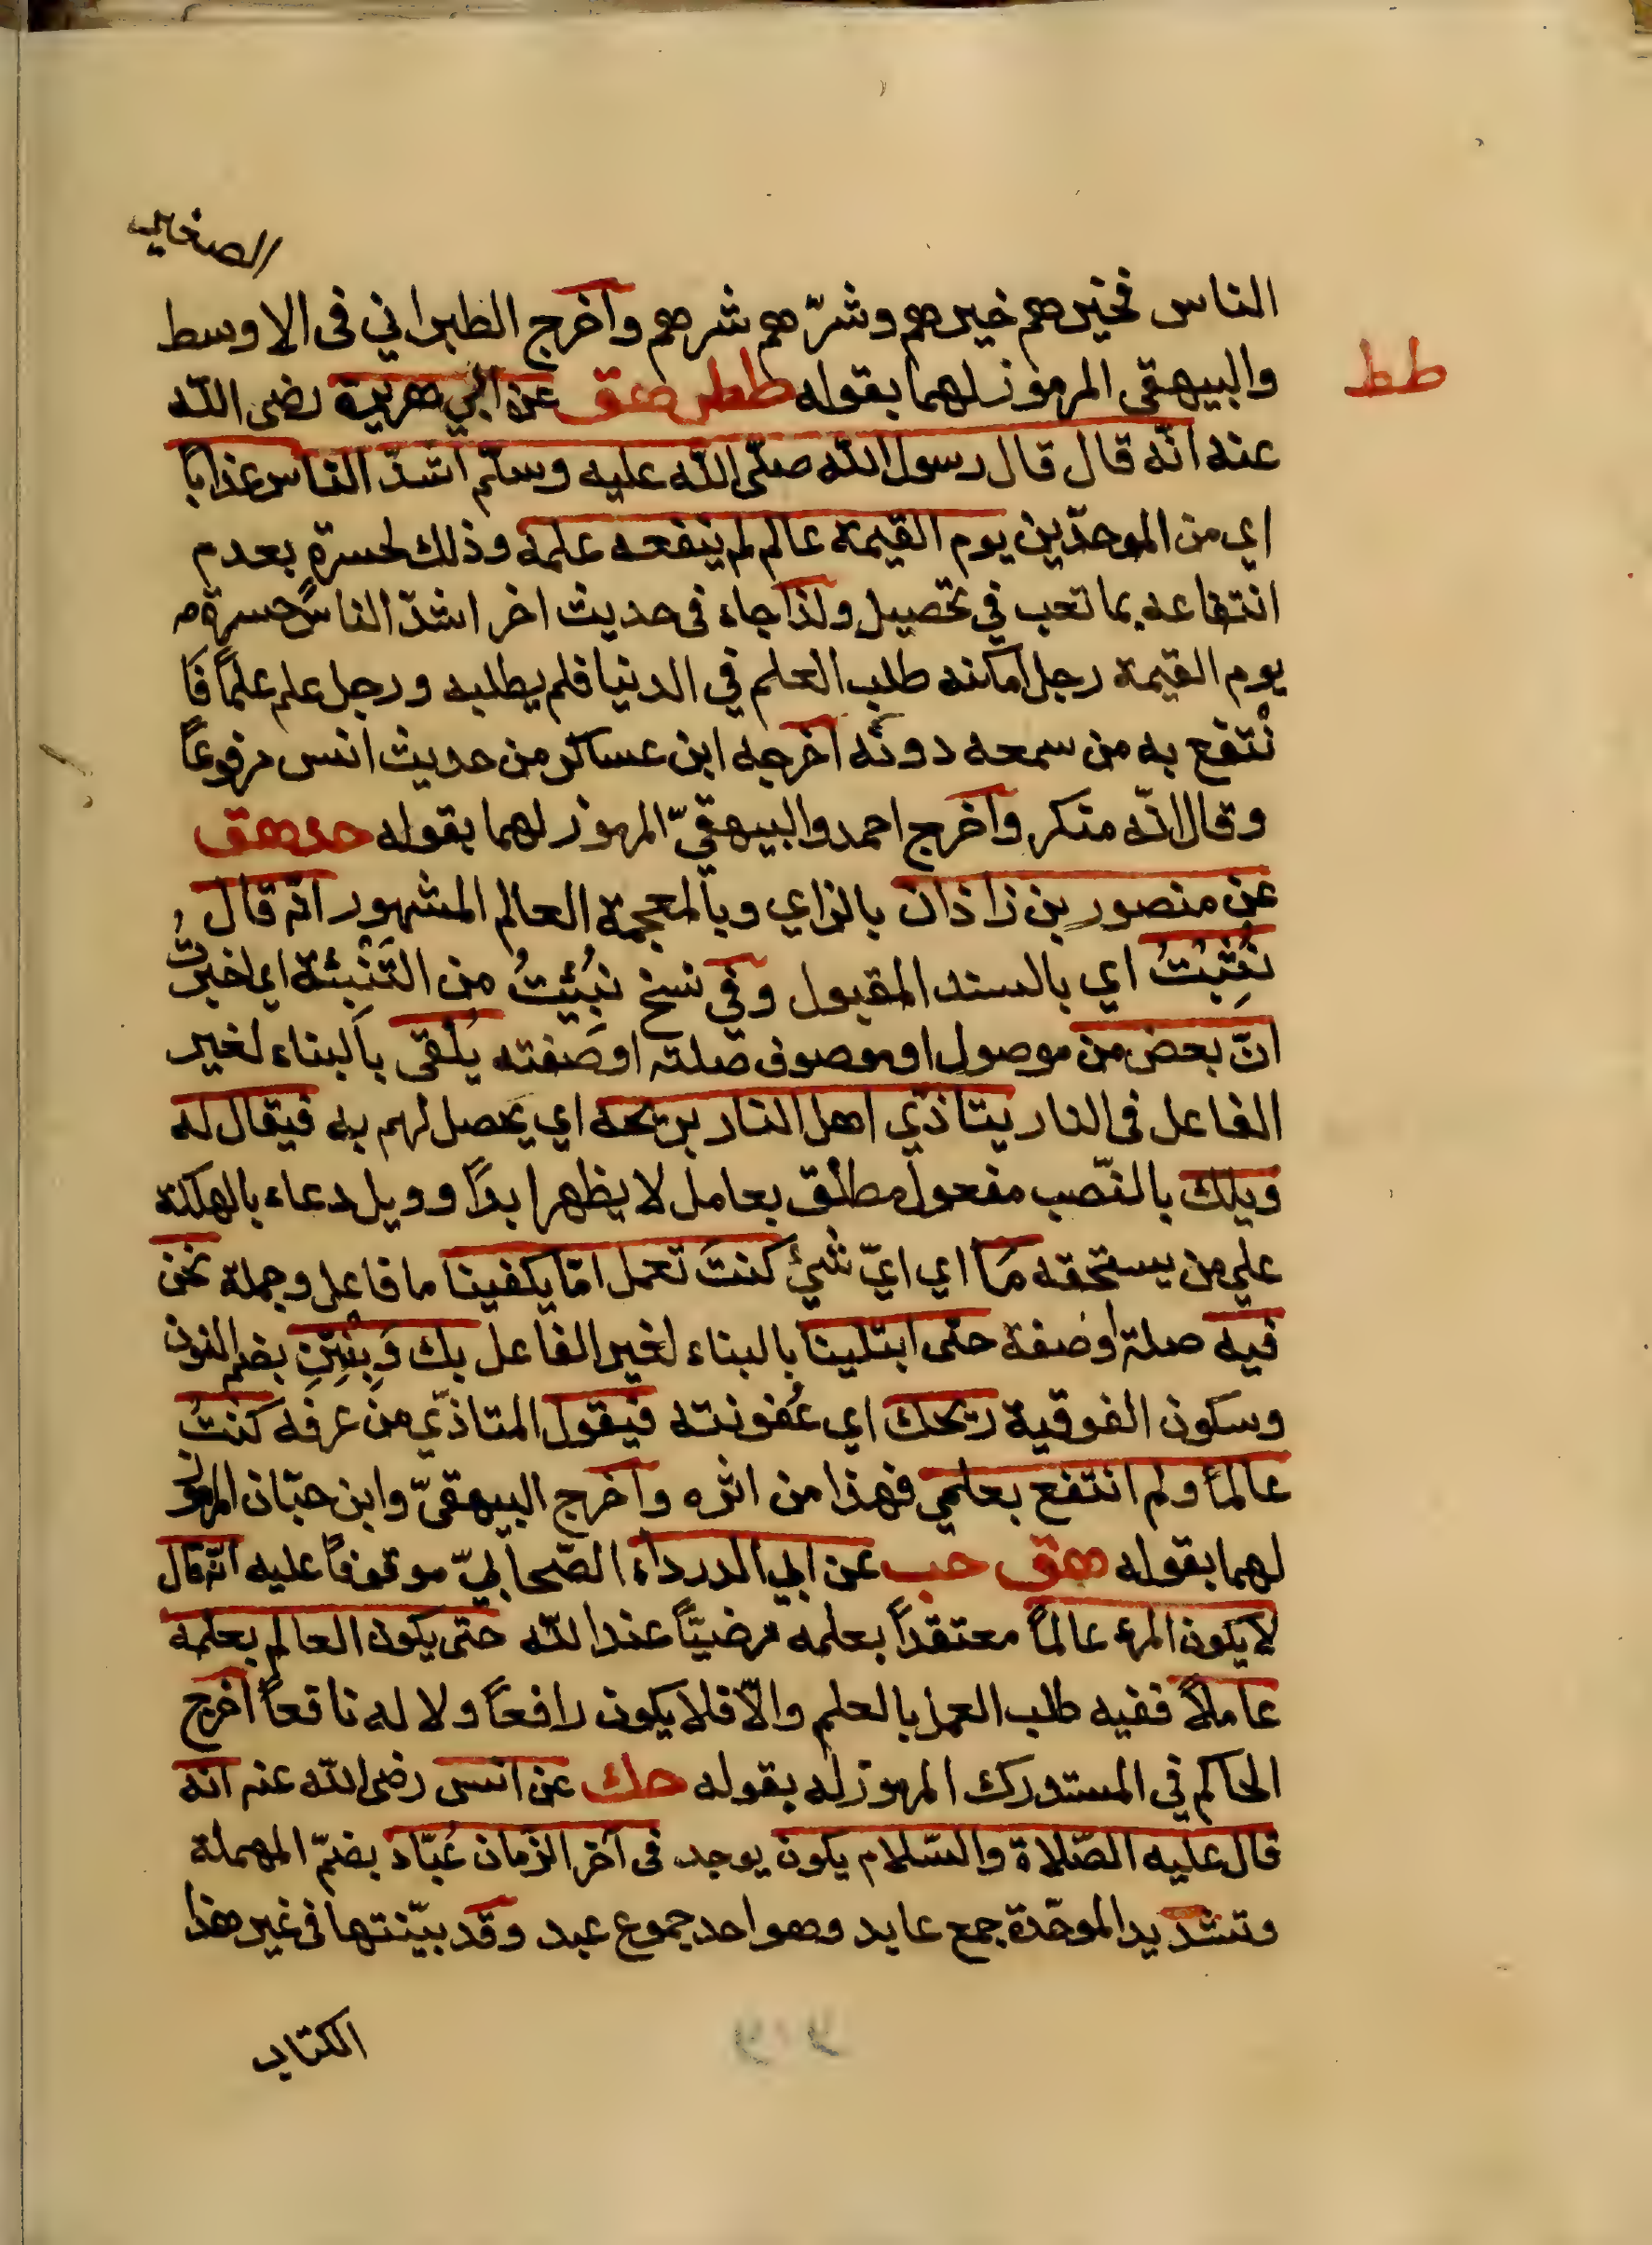 الصغير
الناس فخيرهم خيرهم وشرّهم شرهم وأخرج الطبراني فى الاوسط
طط
والبيهقى المرموز لهما بقوله ططر هق عن ابي هريرة رضى اللّه
عنه انّه قال قال رسول اللّه صلّى اللّه عليه وسلّم اشدّ الناس عذابًا
اي من الموحدّين يوم القيمة عالم لم ينفعه علمه وذلك لحسرة بعدم
انتفاعه بما تعب في تحصيل ولذا جاء فى حديث اخر اشدّ الناس حسرة
يوم القيمة رجل امكنه طلب العلم في الدنيا فلم يطلبه ورجل علم علمًا فَا
نْتفع به من سمعه دونَه اخرجه ابن عساكر من حديث انس مرفوعًا
وقال انّه منكر وأخرج احمد والبيهقيّ المرموز لهما بقوله حد هق
عن منصور بن زاذان بالزاي وبالمعجمة العالم المشهور انّه قال
نُبِّئْتُ اي بالسند المقبول وفي نسخ نُبِّئتُ من التَّنْبئة اي اخبرتُ
انّ بعض من موصول او موصوف صلته او صفته يُلقى بالبناء لغير
الفاعل فى النار يتاذّي اهل النار بريحه اي يحصل لهم به فيقال له
ويلك بالنّصب مفعول مطلق بعامل لا يظهر ابدًا وويل دعاء بالهلكة
علي من يستحقه مَا اي ايّ شيْءٍ كنتَ تعمل امّا يكفينا ما فاعل وجملة نحن
فيه صلة او صفة حتى ابتلينا بالبناء لغير الفاعل بك وَبِنُتْنِ بضم النون
وسكون الفوقية ريحك اي عُفونته فيقول المتاذّي من عرفه كنتُ
عالمًا ولم انتفع بعلمي فهذا من اثره وأخرج البيهقيّ وابن حبّان المرموز
لهما بقوله هق حب عن ابي الدرداء الصّحابيّ موقوفًا عليه انّه قال
لا يكون المرء عالمًا معتقدًا بعلمه مرضيّاً عند اللّه حتى يكون العالم بعلمه
عاملًا ففيه طلب العمل بالعلم والّا فلا يكون رافعًا ولا له نافعًا اخرج
الحاكم في المستدرك المرموز له بقوله حك عن انس رضى اللّه عنه انه
قال عليه الصّلاة والسّلام يكون يوجد فى آخر الزمان عُبّاد بضمّ المهملة
وتشديد الموحّدة جمع عابد وهو احد جموع عبد وقد بيّنتها فى غير هذا
الكتاب